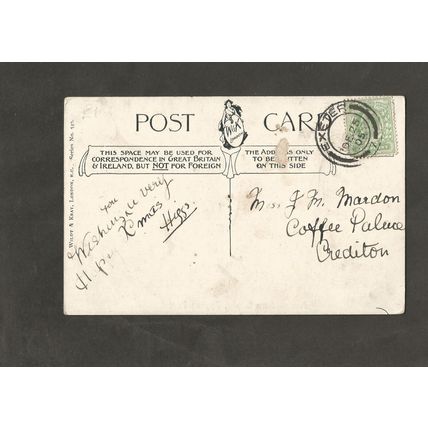 POST CARD
W&K
THIS SPACE MAY BE USED FOR
CORRESPONDENCE IN GREAT BRITAIN
& IRELAND, BUT NOT FOR FOREIGN
THE ADDRESS ONLY
TO BE WRITTEN
ON THIS SIDE
WYLDT & KRAY, LONDON, E.C.
EXETER
DE
you
Wishing a very
Happy
Xmas
J M Mardon
Coffee Palace
Crediton